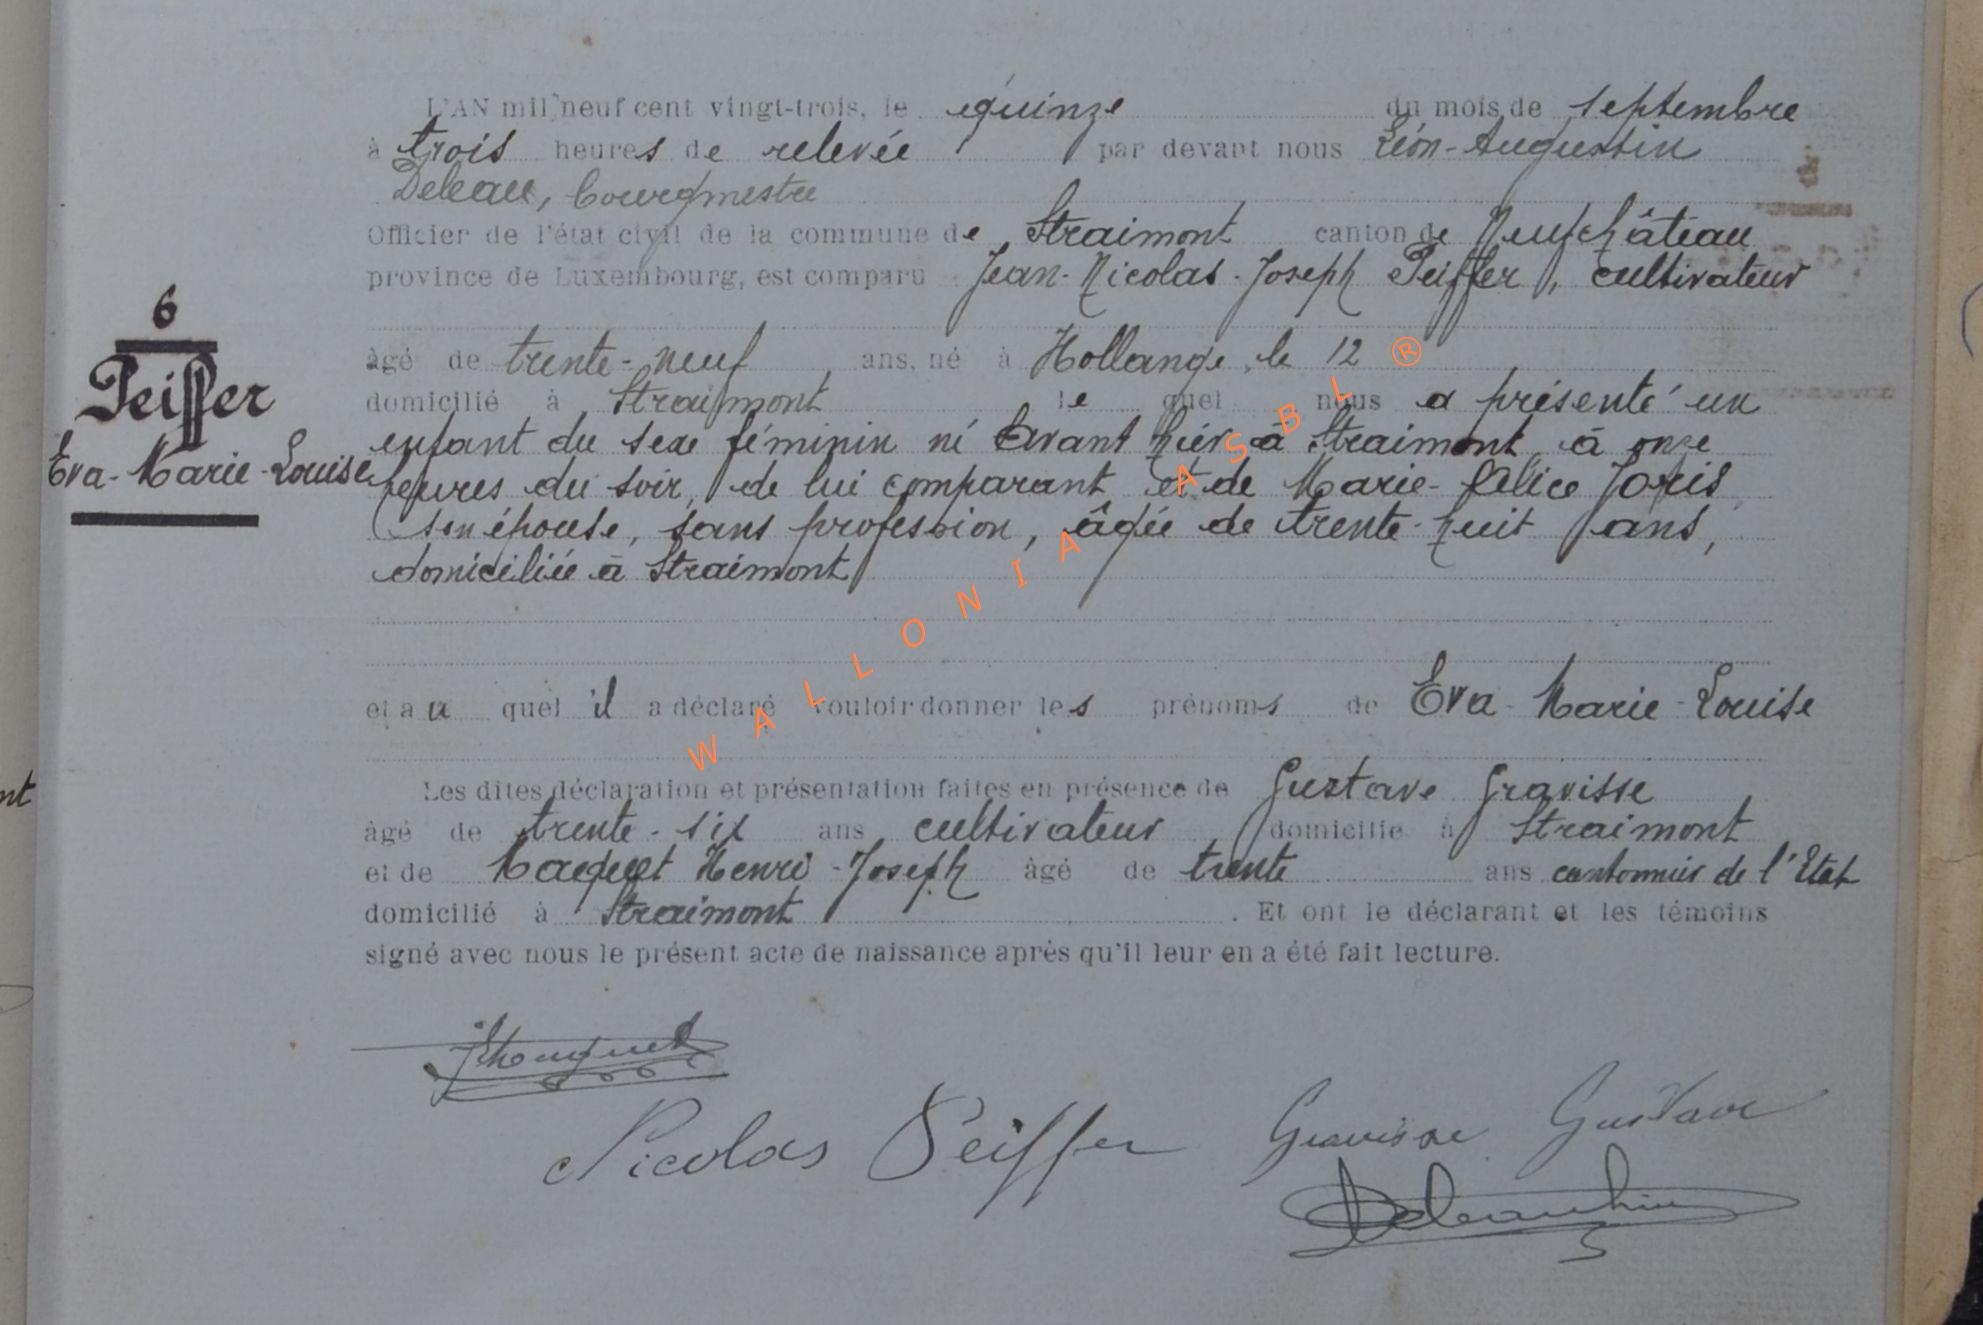 L'AN mil neuf cent vingt-trois, le quinze du mois de septembre
à trois heures de relevée par devant nous Léon-Augustin
Deleau, bourgmestre
Officier de l'état civil de la commune de Straimont canton de Neufchâteau
province de Luxembourg, est comparu Jean-Nicolas-Joseph Peiffer, cultivateur
âgé de trente-neuf ans, né à Hollange, le 12
domicilié à Straimont le quel nous a présenté un
enfant du sexe féminin né avant hier à Straimont à onze
heures du soir, de lui comparant et de Marie-Félice Joris
son épouse, sans profession, âgée de trente-huit ans,
domiciliée à Straimont
et au quel il a déclaré vouloir donner les prénoms de Eva-Marie-Louise
Les dites déclaration et présentation faites en présence de Gustave Gravisse
âgé de trente-six ans cultivateur domicilié à Straimont
et de Maquet Henri-Joseph âgé de trente ans cantonnier de l'Etat
domicilié à Straimont . Et ont le déclarant et les témoins
signé avec nous le présent acte de naissance après qu'il leur en a été fait lecture.
6
Peiffer
Eva-Marie-Louise
nt
Nicolas Peiffer
Gravisse Gustave
WALLONIA ASBL ®